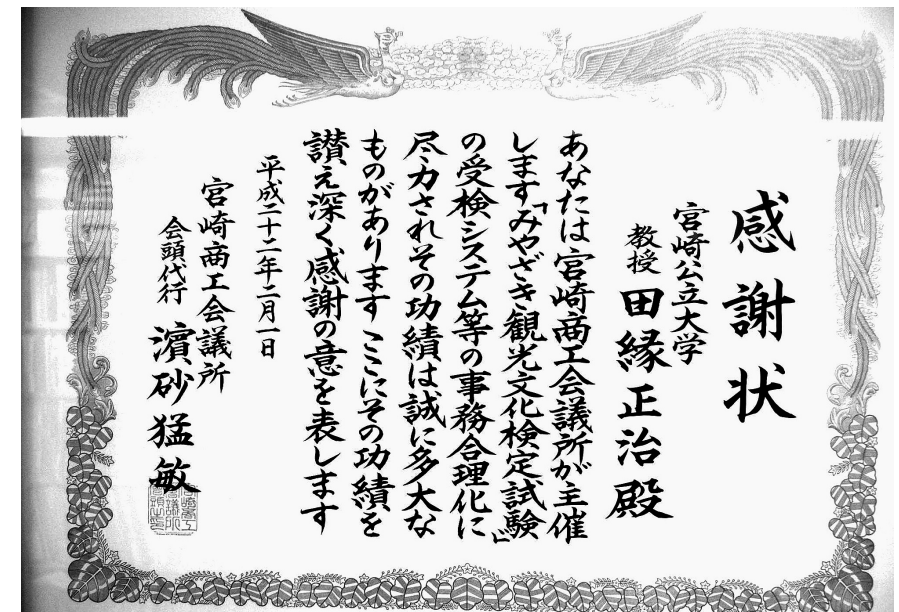 感謝状
宮崎公立大学
教授 田縁正治殿
あなたは宮崎商工会議所が主催
します「みやざき観光文化検定試験」
の受検システム等の事務合理化に
尽力されその功績は誠に多大な
ものがあります ここにその功績を
讃え深く感謝の意を表します
平成二十二年二月一日
宮崎商工会議所
会頭代行 濵砂猛敏